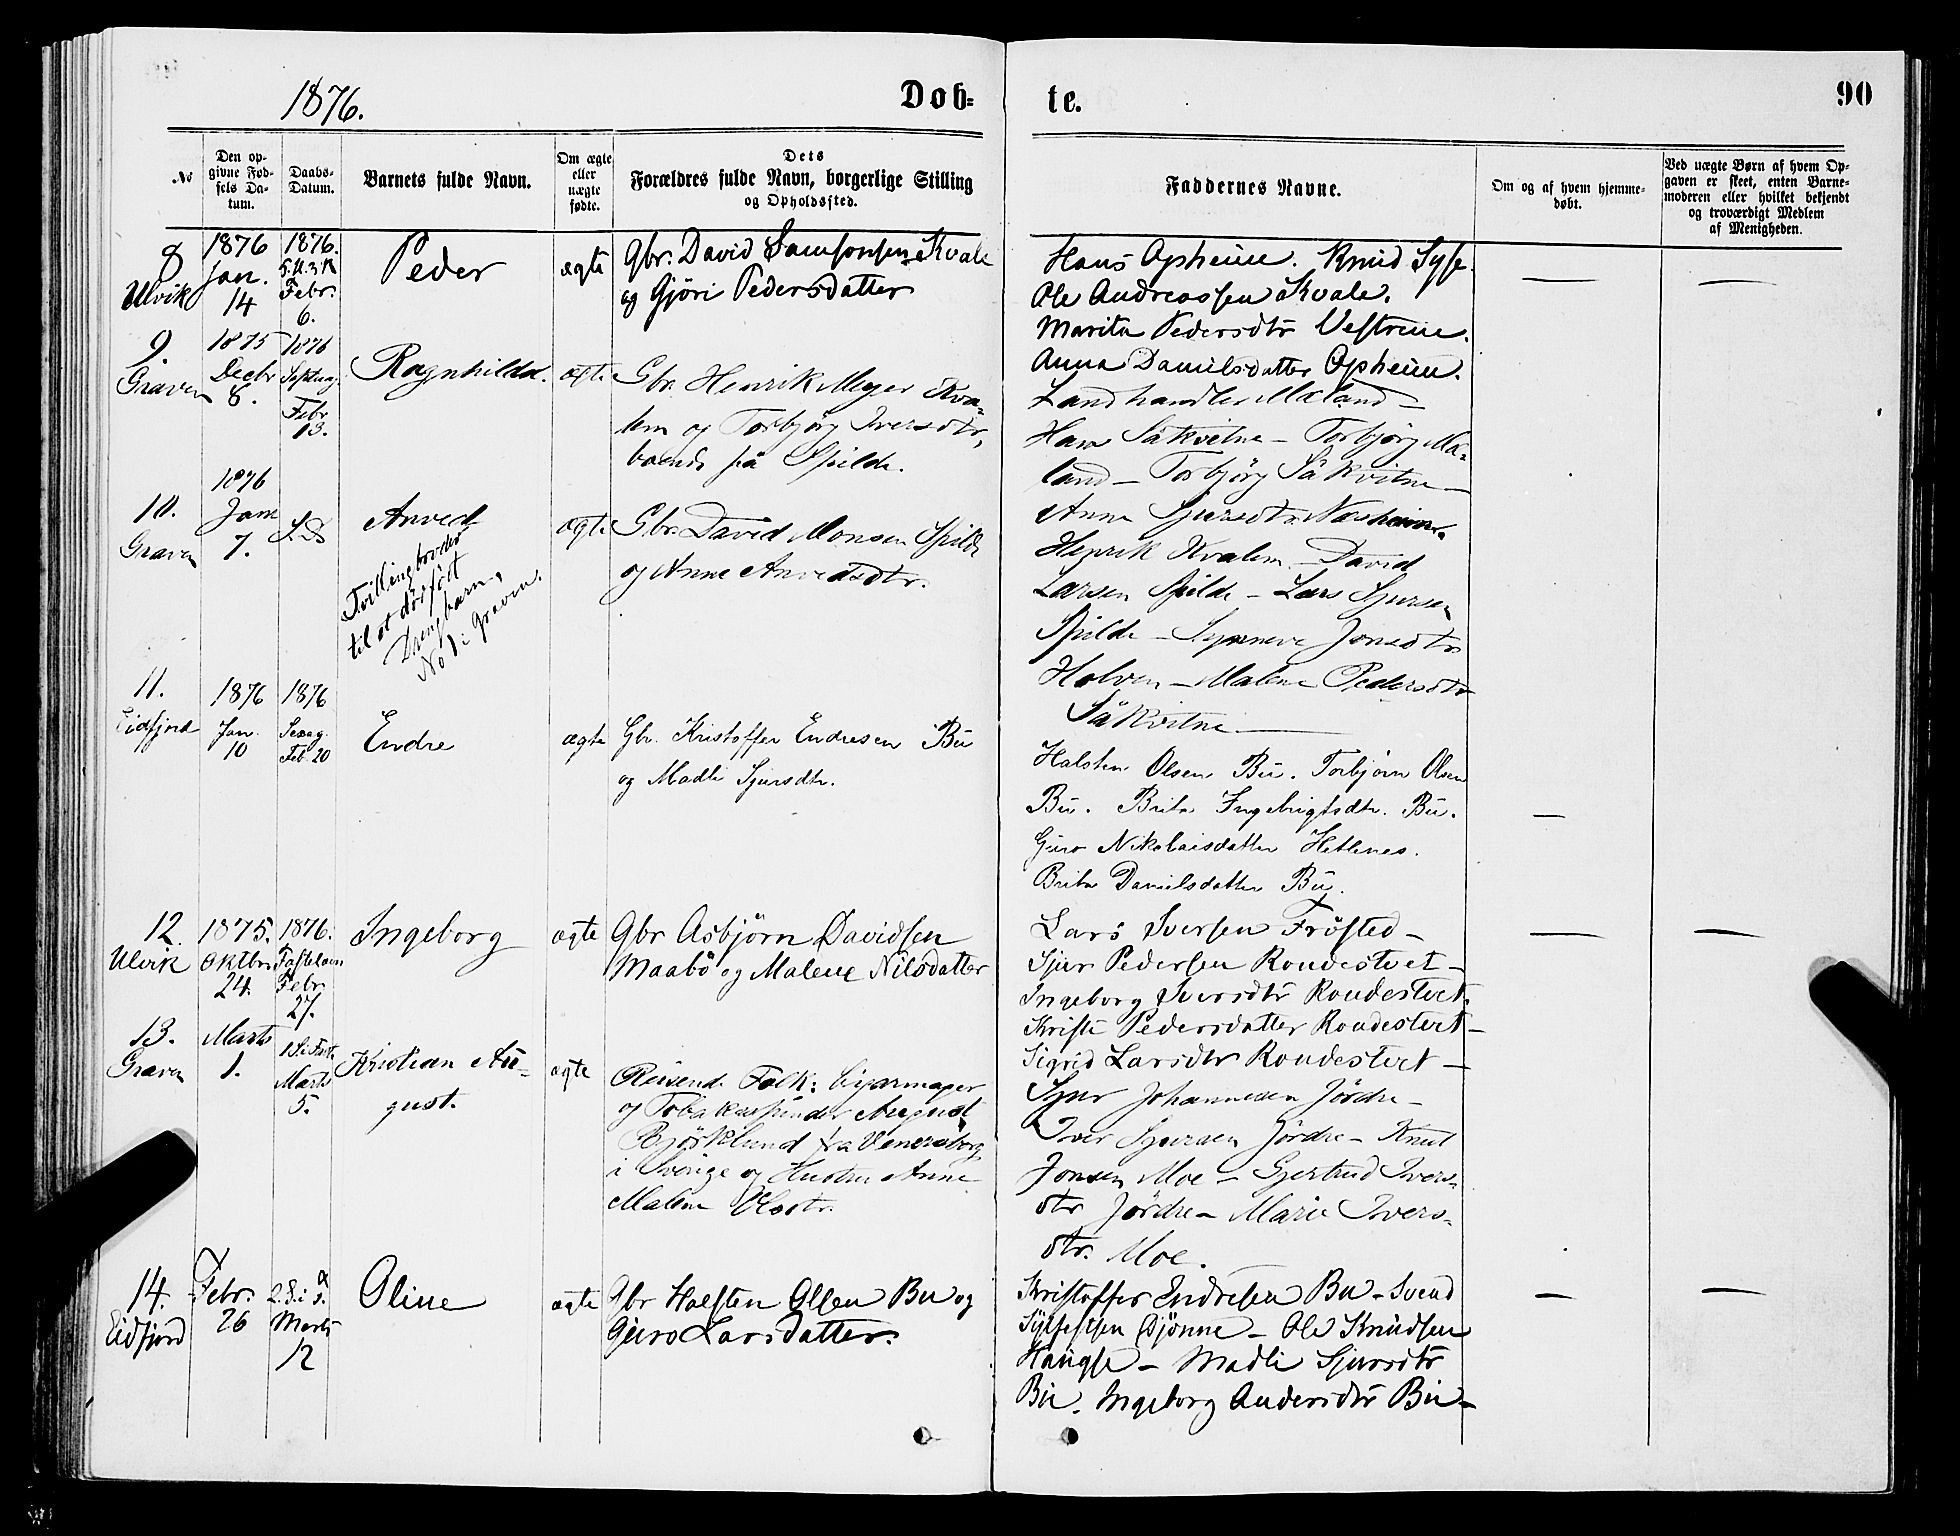 1876.
Døb-
te.
90
No
Den op-
givne Fød-
sels Da-
tum.
Daabs-
Datum.
Barnets fulde Navn.
Om ægte
eller
uægte
fødte.
Dets
Forældres fulde Navn, borgerlige Stilling
og Opholdssted.
Faddernes Navne.
Om og af hvem hjemme-
døbt.
Ved uægte Børn af hvem Op-
gaven er skeet, enten Barne-
moderen eller hvilket bekjendt
og troværdigt Medlem
af Menigheden.
8
Ulvik
1876
Jan.
14
1876.
Febr.
6.
Peder
ægte
Gbr. David Samsonsen Kvale
og Gjöri Pedersdatter
Hans Opheim. Knud Syse.
Ole Andreassen Kvale.
Marita Pedersdtr Vestreim.
Anna Danielsdatter Opheim.
—
—
9.
Graven
1875
Decbr
8.
1876
Febr
13.
Ragnhilda.
ægte
Gbr. Henrik Meyer Kva-
lem og Torbjörg Iversdtr,
boende på Spilde.
Landhandler Mæland —
Hans Såkvitne — Torbjörg Mæ-
land — Torbjörg Såkvitne —
Anna Sjursdtr Næsheim.
10.
Graven
1876
Jan
7.
S.D
Anved
Tvillingbroder
til et dødfödt
Drengbarn,
No 1 i Graven.
ægte
Gbr. David Monsen Spilde
og Anne Anvedsdtr.
Henrik Kvalem — David
Larsen Spilde — Lars Sjursen
Spilde — Synneve Jonsdtr
Holven — Malene Pedersdtr
Såkvitne —
11.
Eidfjord
1876
Jan.
10
1876
Sexag.
Feb. 20
Endre
ægte
Gbr. Kristoffer Endresen Bu
og Madli Sjursdtr.
Halsten Olsen Bu. Torbjörn Olsen
Bu. Brita Ingebrigtsdtr. Bu.
Guro Nikolaisdatter Hetlenes.
Brita Danielsdatter Bu.
—
12.
Ulvik
1875.
Oktbr
24.
1876.
Fastelavn
Febr.
27.
Ingeborg
ægte
Gbr Asbjörn Davidsen
Maabö og Malene Nilsdatter
Lars Iversen Frösted —
Sjur Pedersen Rondestvet —
Ingeborg Iversdtr Rondestvet.
Kristi Pedersdatter Rondestvet —
Sigrid Larsdtr Rondestvet —
—
—
13.
Graven
Marts
1.
1 S. i Fast.
Marts
5.
Kristian Au-
gust.
ægte
Reisende Folk:
og Tobakspinder August
Björklund fra Venersborg
i Sverige og Hustru Anne
Malene
Sjur Johannesen Jördre —
Iver Sjursen Jördre — Knut
Jonsen Moe — Gjertrud Ivers-
dtr Jördre — Marie Ivers-
dtr. Moe.
14.
Eidfjord
Febr.
26
2. S. i F.
Marts
12
Oline
ægte
Gbr Halsten Olsen Bu og
Guro Larsdatter.
Kristoffer Endresen Bu — Svend
Sylfestsen Djönne — Ole Knudsen
Haugse — Madli Sjursdtr
Bu. Ingeborg Andersdtr Bu —
—
—